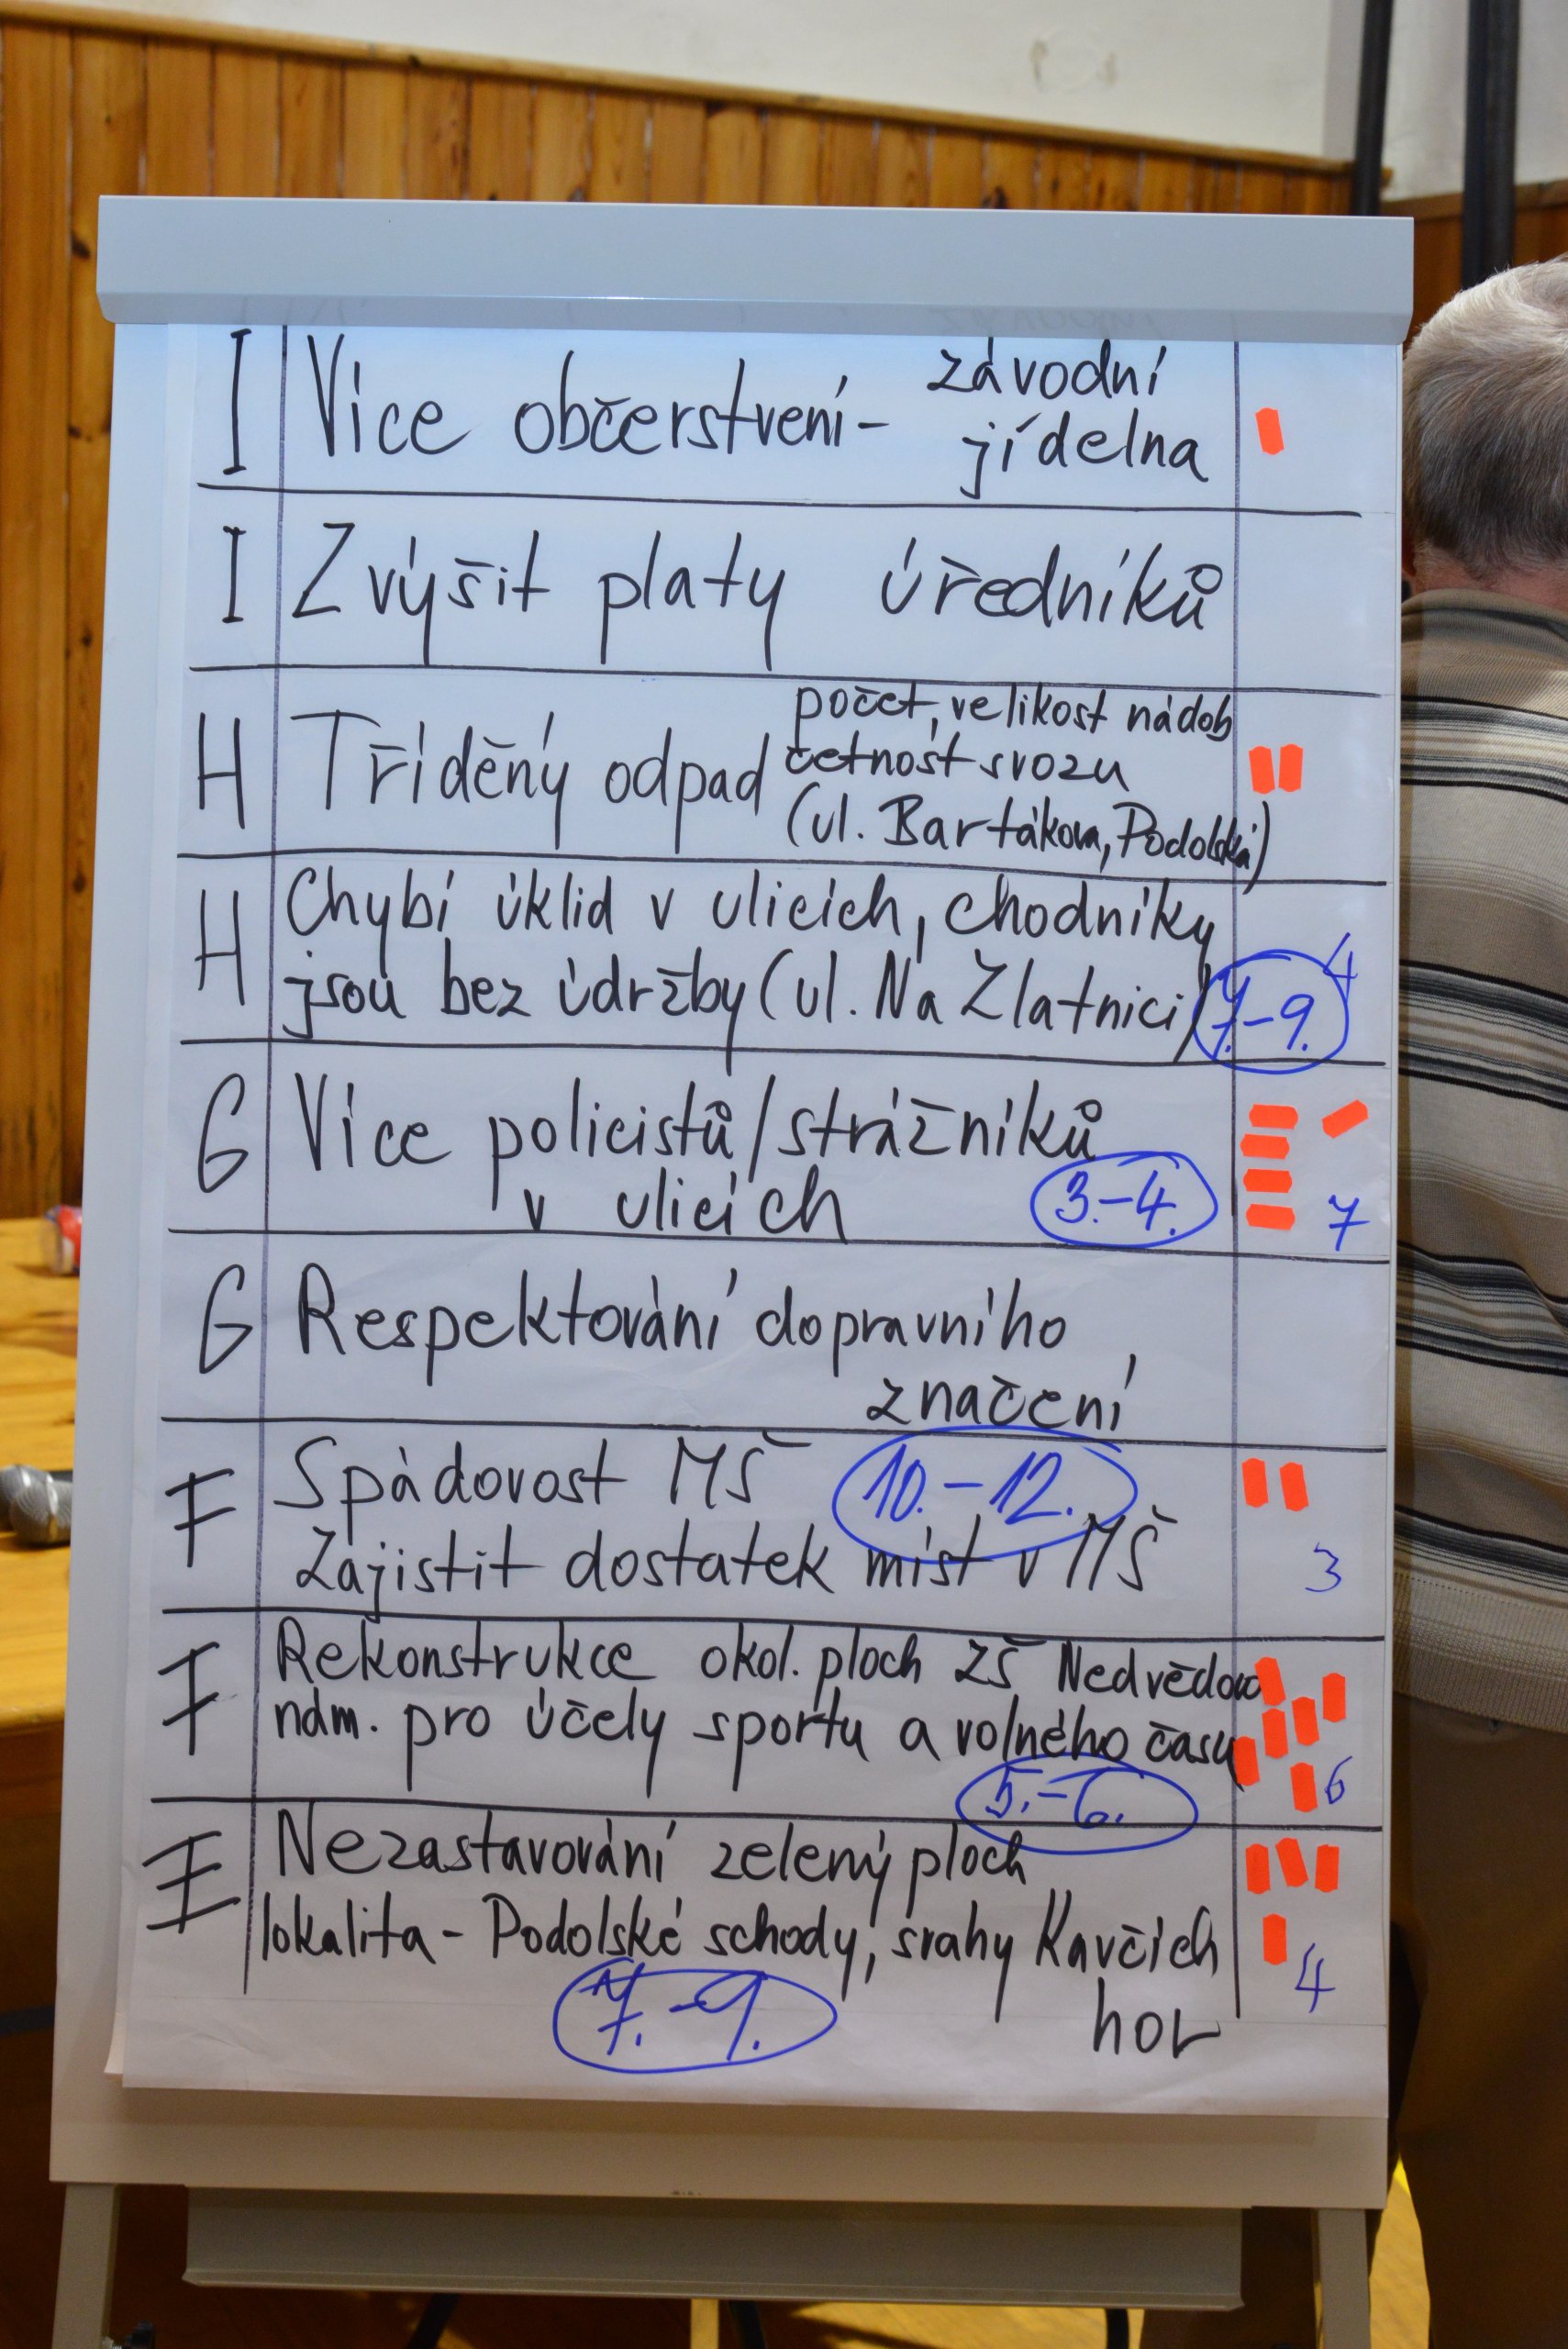 I Více občerstvení - závodní
jídelna
I Zvýšit platy úředníků
H Tříděný odpad počet, velikost nádob
četnost svozu
(ul. Bartákova, Podolská)
H Chybí úklid v ulicích, chodníky
jsou bez údržby (ul. Na Zlatnici)
4
7.-9.
G Více policistů/strážníků
v ulicích
3.-4.
7
G Respektování dopravního
značení
F Spádovost MŠ
10.-12.
Zajistit dostatek míst v MŠ
3
F Rekonstrukce okol. ploch ZŠ Nedvědovo
nám. pro účely sportu a volného času
5.-6.
6
E Nezastavování zelený ploch
lokalita - Podolské schody, svahy Kavčích
hor
4
7.-9.